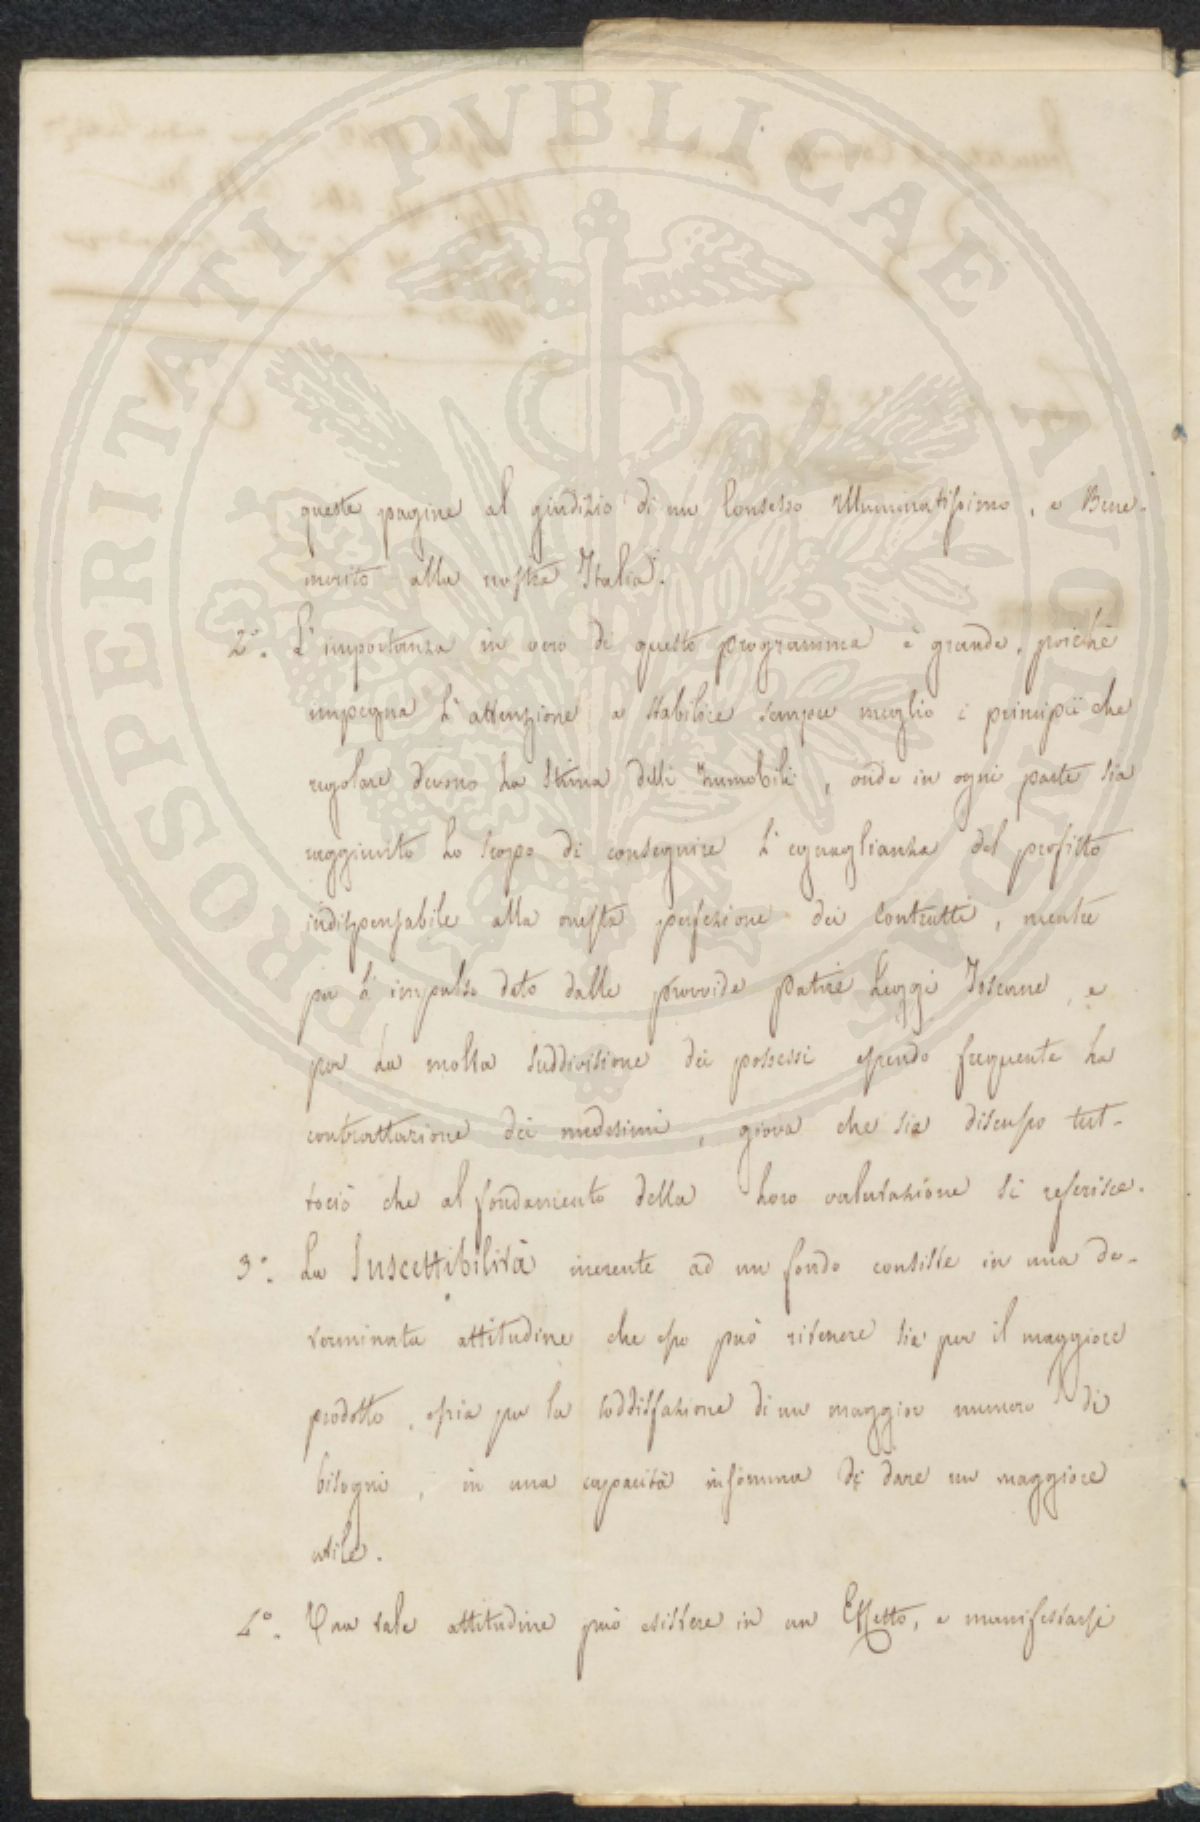 PROSPERITATI PVBLICAE AVGENDAE
queste pagine al giudizio di un Consesso Illuminatissimo, e Bene-
merito alla nostra Italia.
2°. L'importanza in vero di questo programma è grande, poichè
impegna l'attenzione a stabilire sempre meglio i principii che
regolare devono la Stima delli Immobili, onde in ogni parte sia
raggiunto lo scopo di conseguire l'eguaglianza del profitto
indispensabile alla onesta perfezione dei Contratti, mentre
per l'impulso dato dalle provvide patrie Leggi Toscane, e
per la molta suddivisione dei possessi essendo frequente la
contrattazione dei medesimi, giova che sia discusso tut-
tociò che al fondamento della loro valutazione si referisce.
3°. La Suscettibilità inerente ad un fondo consiste in una de-
terminata attitudine che esso può ritenere sia per il maggiore
prodotto, ossia per la soddisfazione di un maggior numero di
bisogni, in una capacità insomma di dare un maggiore
utile.
4°. Una tale attitudine può esistere in un Effetto, e manifestarsi